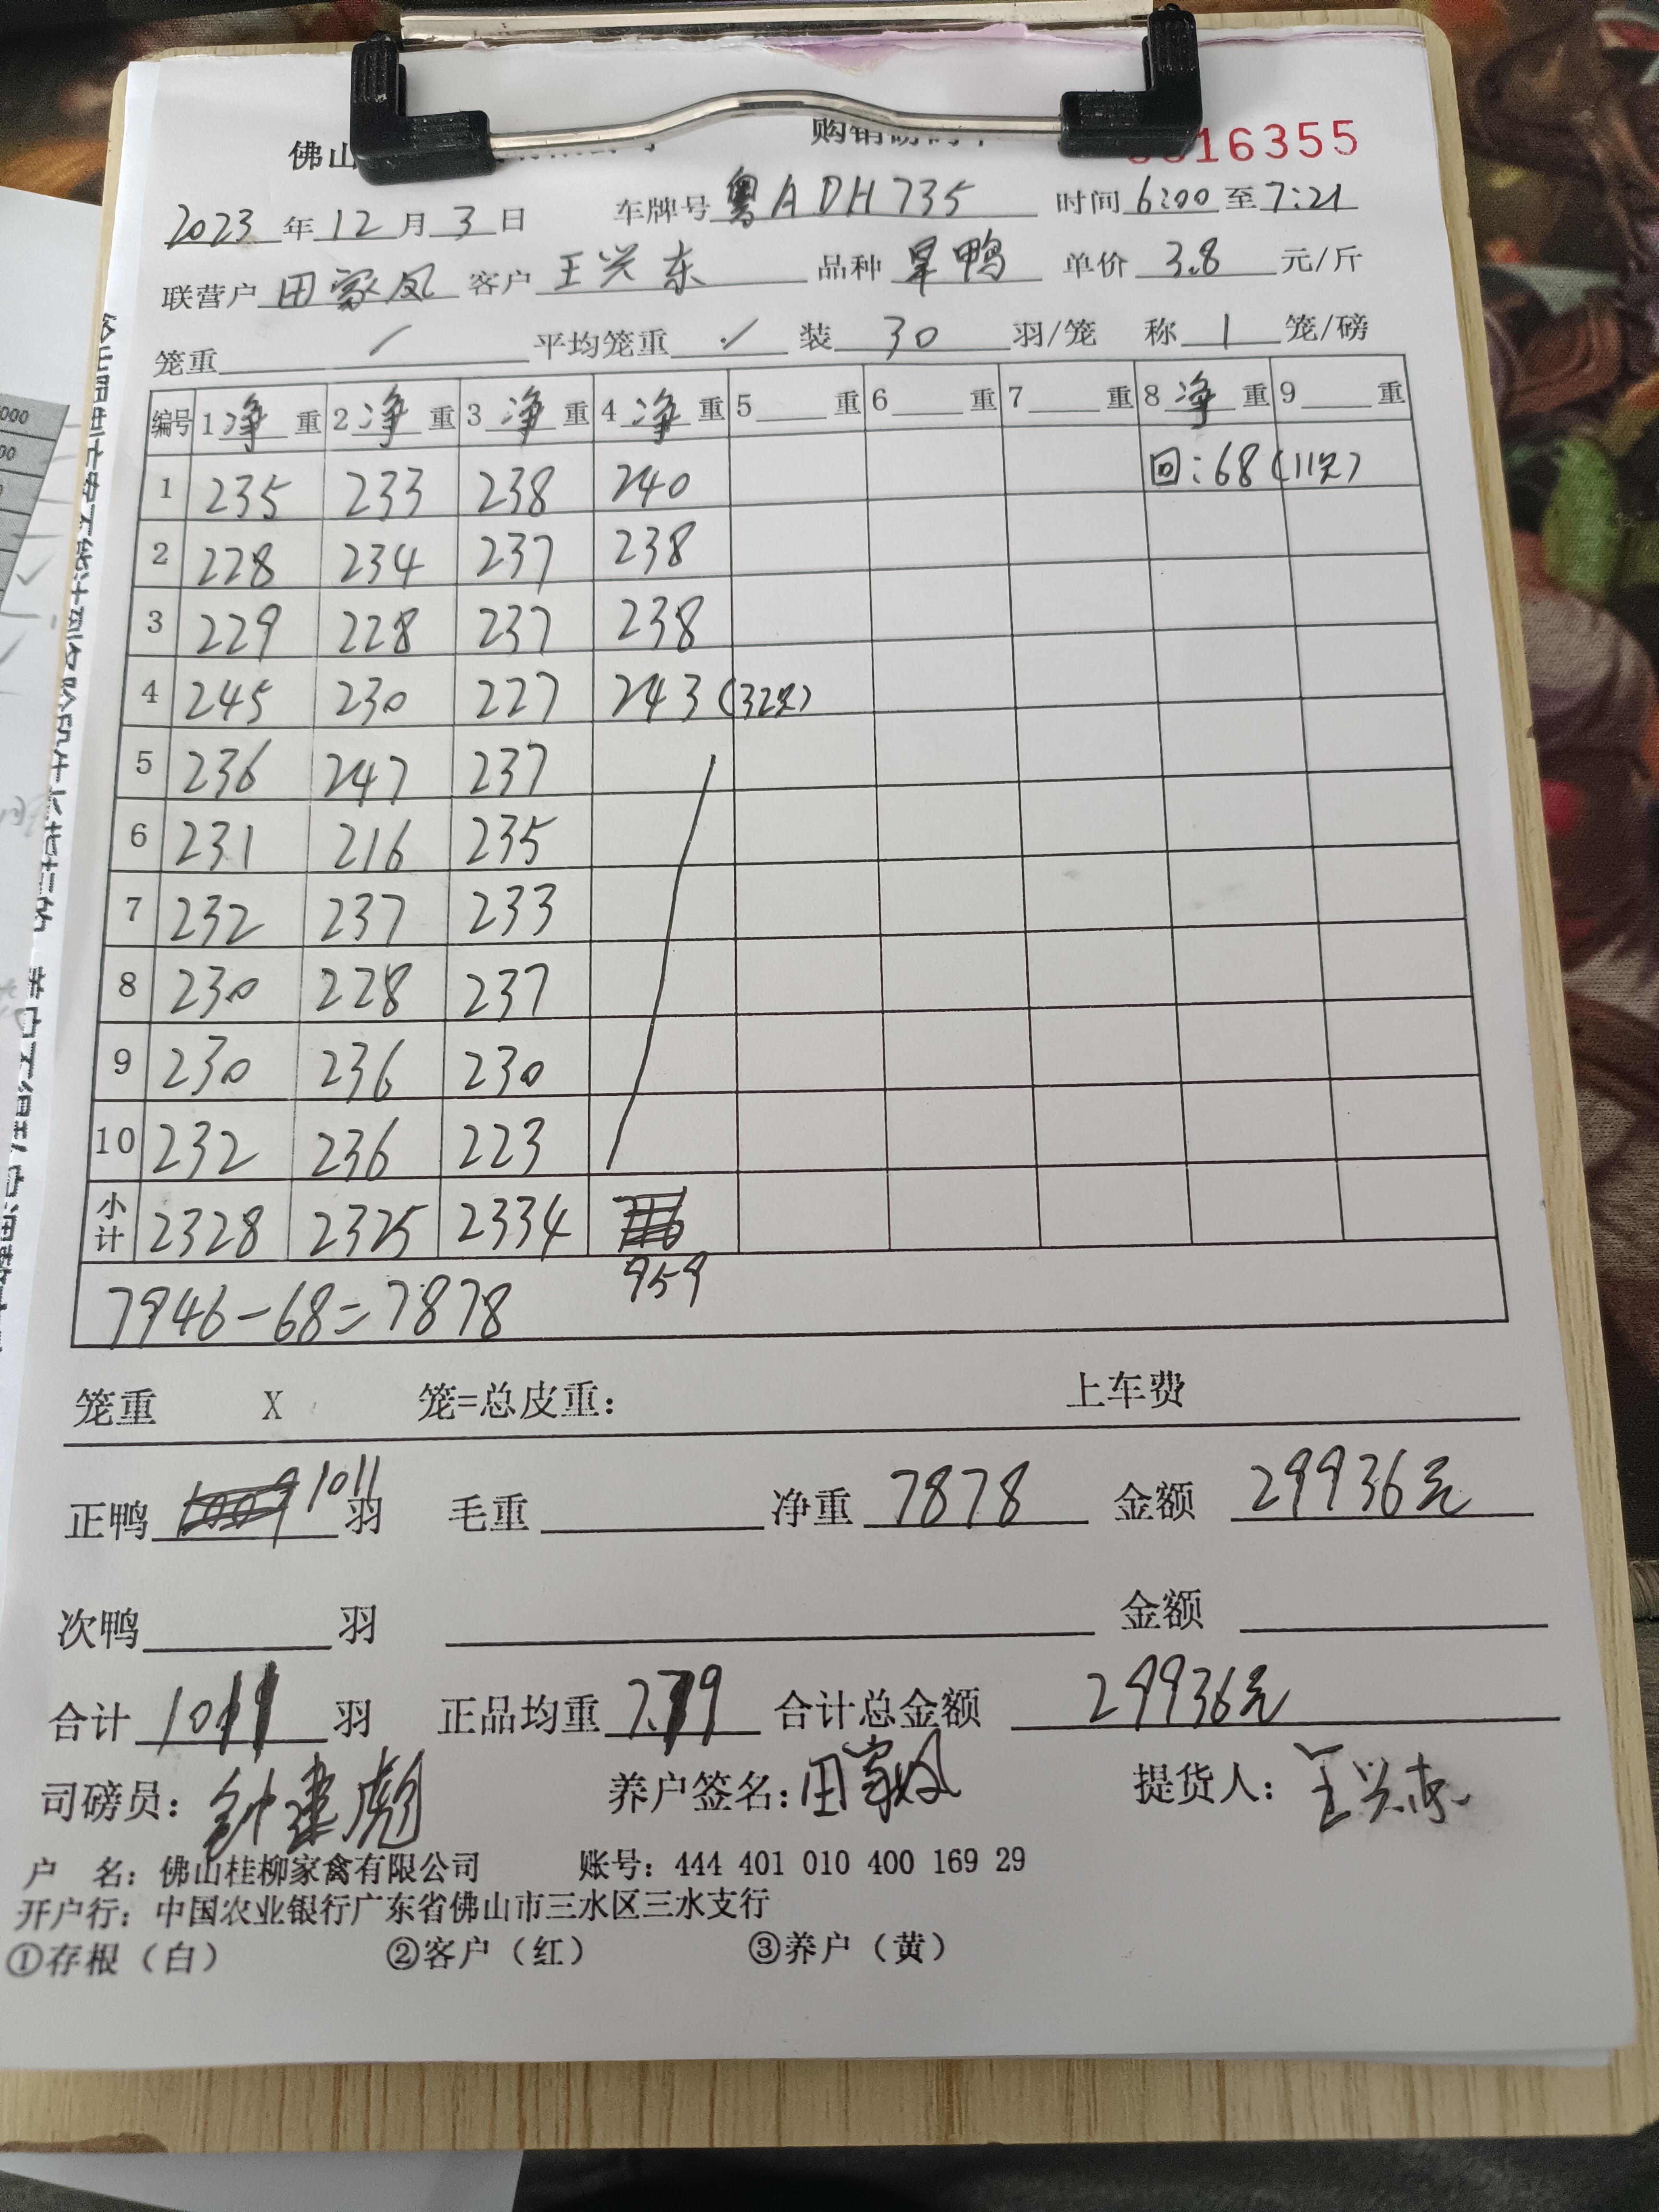 佛山 购销磅码单 16355
2023年12月3日 车牌号粤ADH735 时间6:00至7:21
联营户田家凤 客户王兴东 品种旱鸭 单价3.8元/斤
笼重 ✓ 平均笼重 ✓ 装30羽/笼 称1笼/磅
编号 1净重 2净重 3净重 4净重 5重 6重 7重 8净重 9重
1 235 233 238 240 回:68(11只)
2 228 234 237 238
3 229 228 237 238
4 245 230 227 243(32只)
5 236 247 237
6 231 216 235
7 232 237 233
8 230 228 237
9 230 236 230
10 232 236 223
小计 2328 2325 2334 959
7946-68=7878
笼重 X 笼=总皮重: 上车费
正鸭 1011羽 毛重 净重7878 金额29936元
次鸭 羽 金额
合计1011羽 正品均重7.79 合计总金额29936元
司磅员:钟建彪 养户签名:田家凤 提货人:王兴东
户 名:佛山桂柳家禽有限公司 账号:444 401 010 400 169 29
开户行:中国农业银行广东省佛山市三水区三水支行
①存根(白) ②客户(红) ③养户(黄)